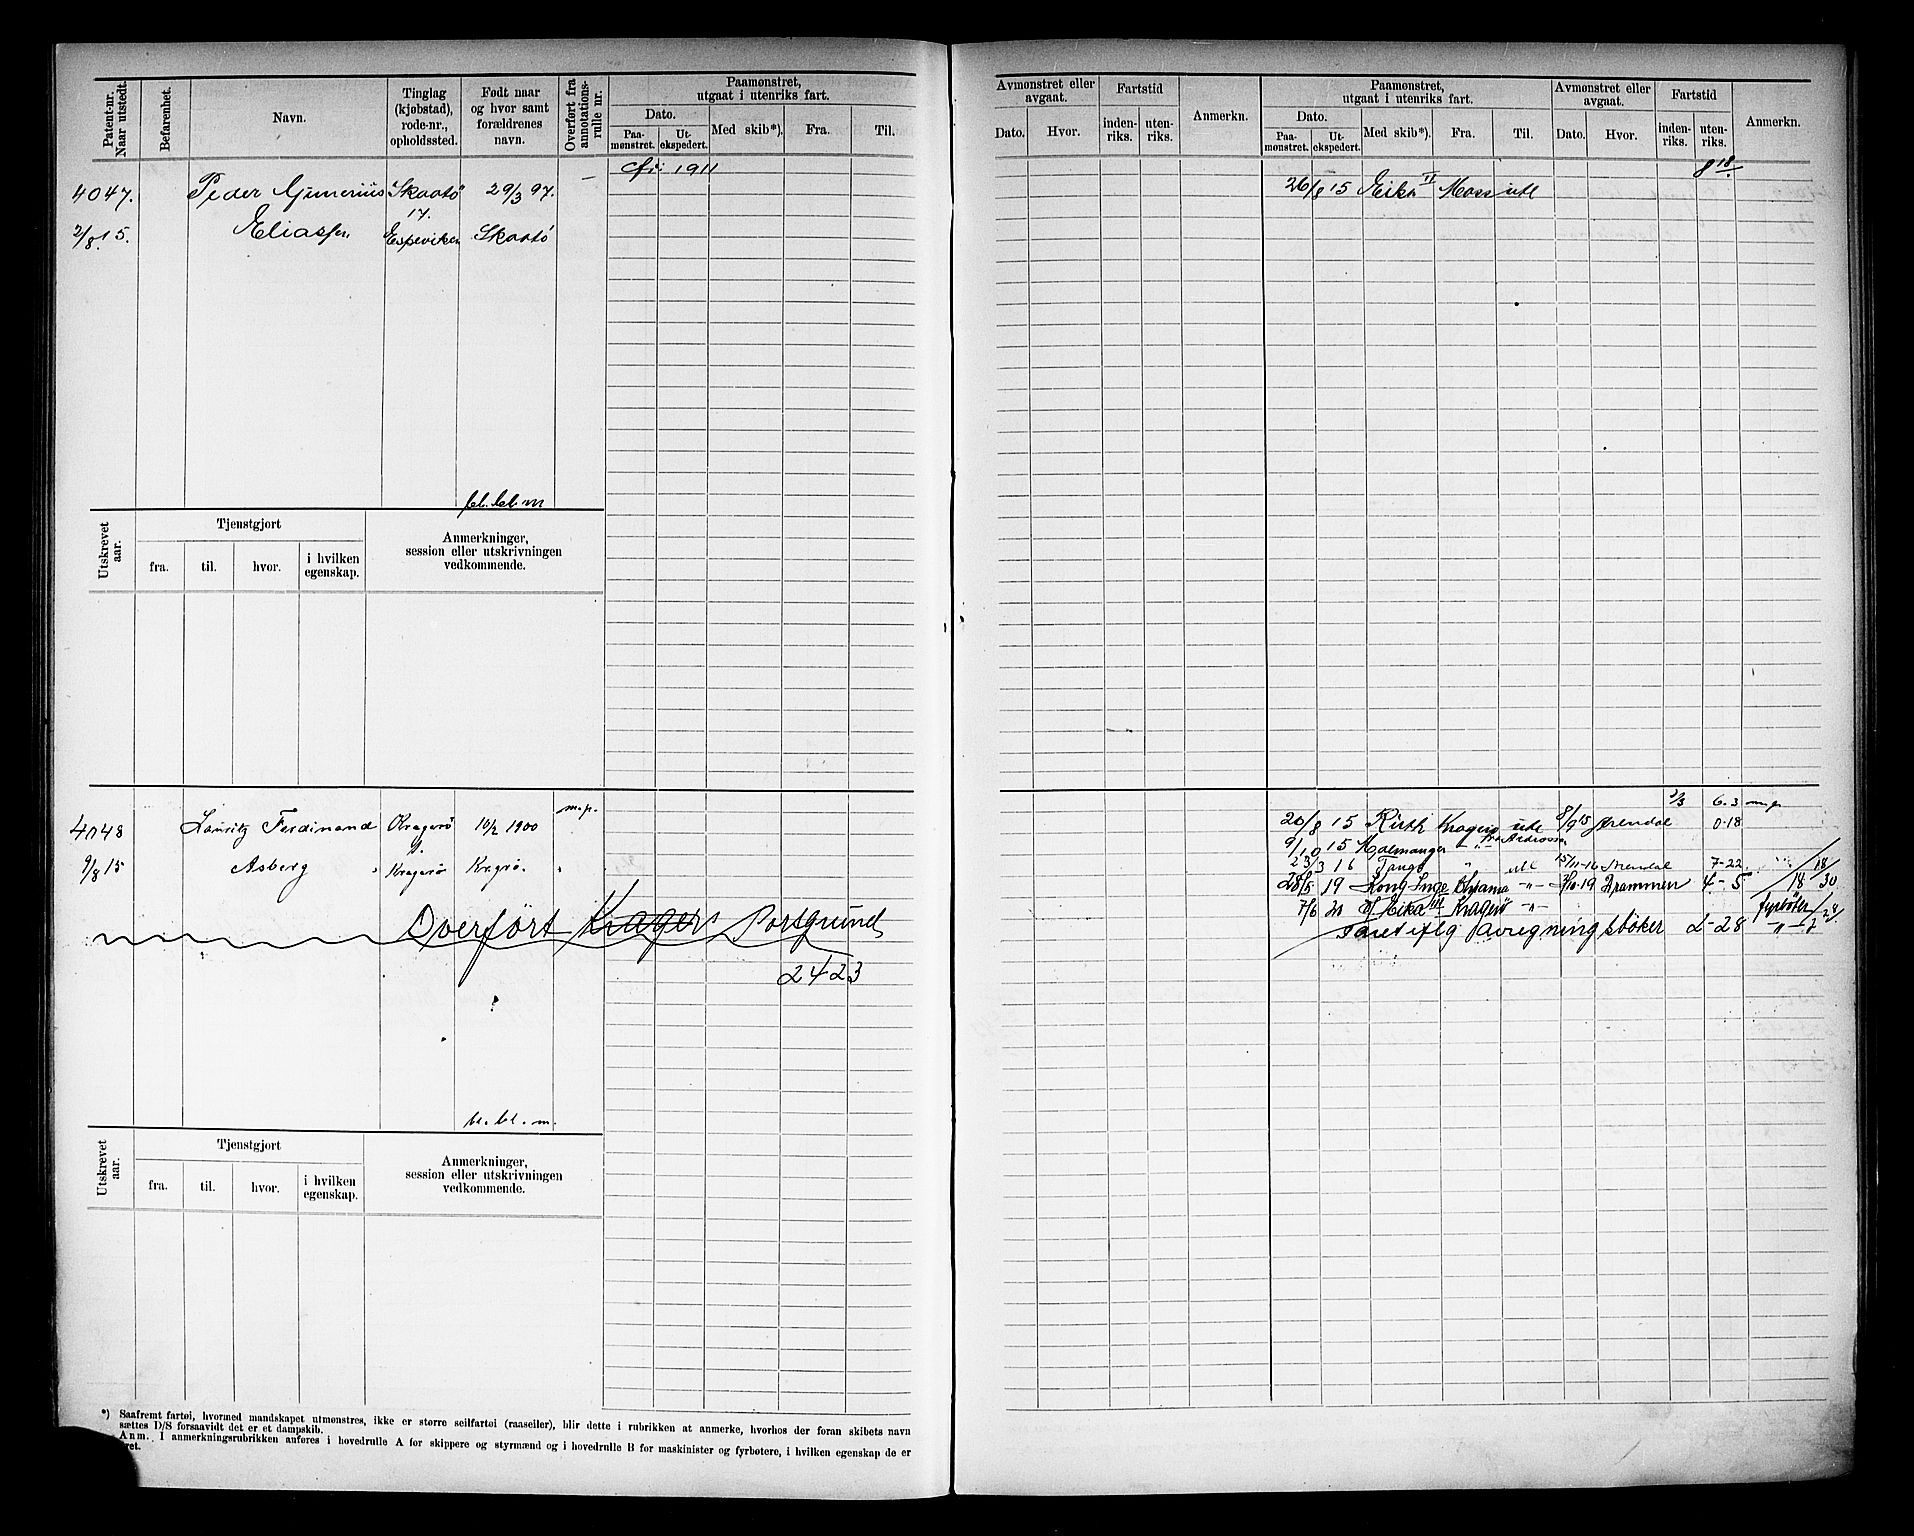 Patent-nr. Naar utstedt.
Befarenhet.
Navn.
Tinglag (kjøbstad), rode-nr., opholdssted.
Født naar og hvor samt forældrenes navn.
Overført fra annotations-rulle nr.
Paamønstret, utgaat i utenriks fart.
Dato.
Paa-mønstret.
Ut-ekspedert.
Med skib*).
Fra.
Til.
1911
4047. Peder Gunerius Skaatø 29/3 97. -
17.
2/8.15. Eliassen Espeviken Skaatø
bl. bl. m
Utskrevet aar.
Tjenstgjort
fra. til. hvor. i hvilken egenskap.
Anmerkninger, session eller utskrivningen vedkommende.
m.p.
4048 Lauritz Ferdinand Kragerø 10/2 1900
9/8 15 Asberg Kragerø Kragerø.
Overført Kragerø Porsgrund
2423
bl. bl. m.
Utskrevet aar.
Tjenstgjort
fra. til. hvor. i hvilken egenskap.
Anmerkninger, session eller utskrivningen vedkommende.
*) Saafremt fartøi, hvormed mandskapet utmønstres, ikke er større seilfartøi (raaseiler), blir dette i rubrikken at anmerke, hvorhos der foran skibets navn
sættes D/S forsaavidt det er et dampskib.
Anm. I anmerkningsrubrikken anføres i hovedrulle A for skippere og styrmænd og i hovedrulle B for maskinister og fyrbøtere, i hvilken egenskap de er
ret.
Avmønstret eller avgaat.
Dato. Hvor.
Fartstid
inden-riks. uten-riks.
Anmerkn.
Paamønstret, utgaat i utenriks fart.
Dato.
Paa-mønstret. Ut-ekspedert.
Med skib*). Fra. Til.
Avmønstret eller avgaat.
Dato. Hvor.
Fartstid
inden-riks. uten-riks.
Anmerkn.
8 18.
26/8 15 Eika II Moss utl
2/3 6.3
20/8 15 Ruth Kragerø utl 8/9 15 Arendal 0-18
9/10 15 Holmanger - " - Ardrossan
23/3 16 Tango " utl 15/11-16 Arendal 7-22
28/5 19 Kong Inge Khrania -"- 3/10-19 Drammen 4-5 18/30
7/6 20 Eika III Kragerø -"- fyrbøter
Faret iflg avregningsbøker 2-28 -"-